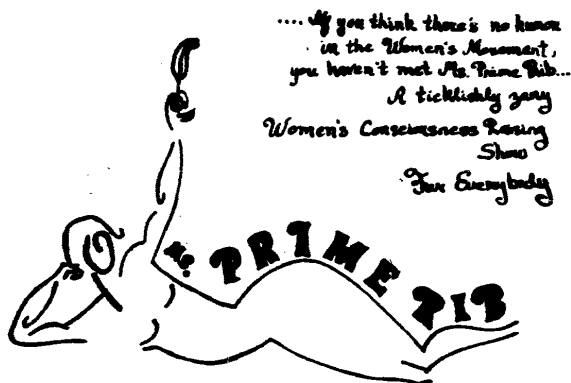 .... If you think there's no humor
in the Women's Movement,
you haven't met Ms. Prime Rib...
A ticklishly zany
Women's Consciousness Raising
Show
For Everybody
Ms. PRIME RIB